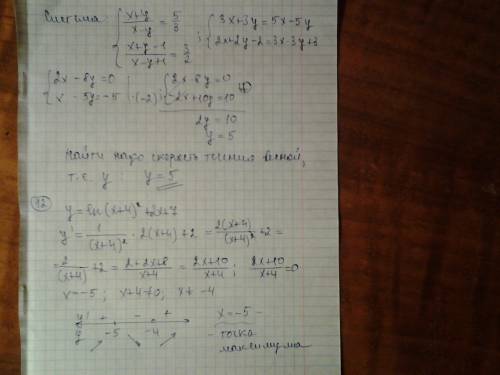 Система { (x+y)/(x-y) = 5/3 ; { 3x+3y=5x-5y
(x+y-1)/(x-y+1) = 3/2 2x+2y-2=3x-3y+3
{ 2x-8y=0 { 2x-8y=0
x-5y=-5 | ·(-2) ; -2x+10y=10
2y=10
y=5
Найти надо скорость течения весной,
т.е. y : y=5
12
y=ln(x+4)²+2x+7
y'=1/(x+4)² · 2(x+4)+2 = 2(x+4)/(x+4)² +2=
= 2/(x+4) +2 = (2+2x+8)/(x+4) = (2x+10)/(x+4) ; (2x+10)/(x+4) =0
x=-5 ; x+4≠0, x≠-4
y' + - + x=-5 -
y -5 -4 - точка
максимума